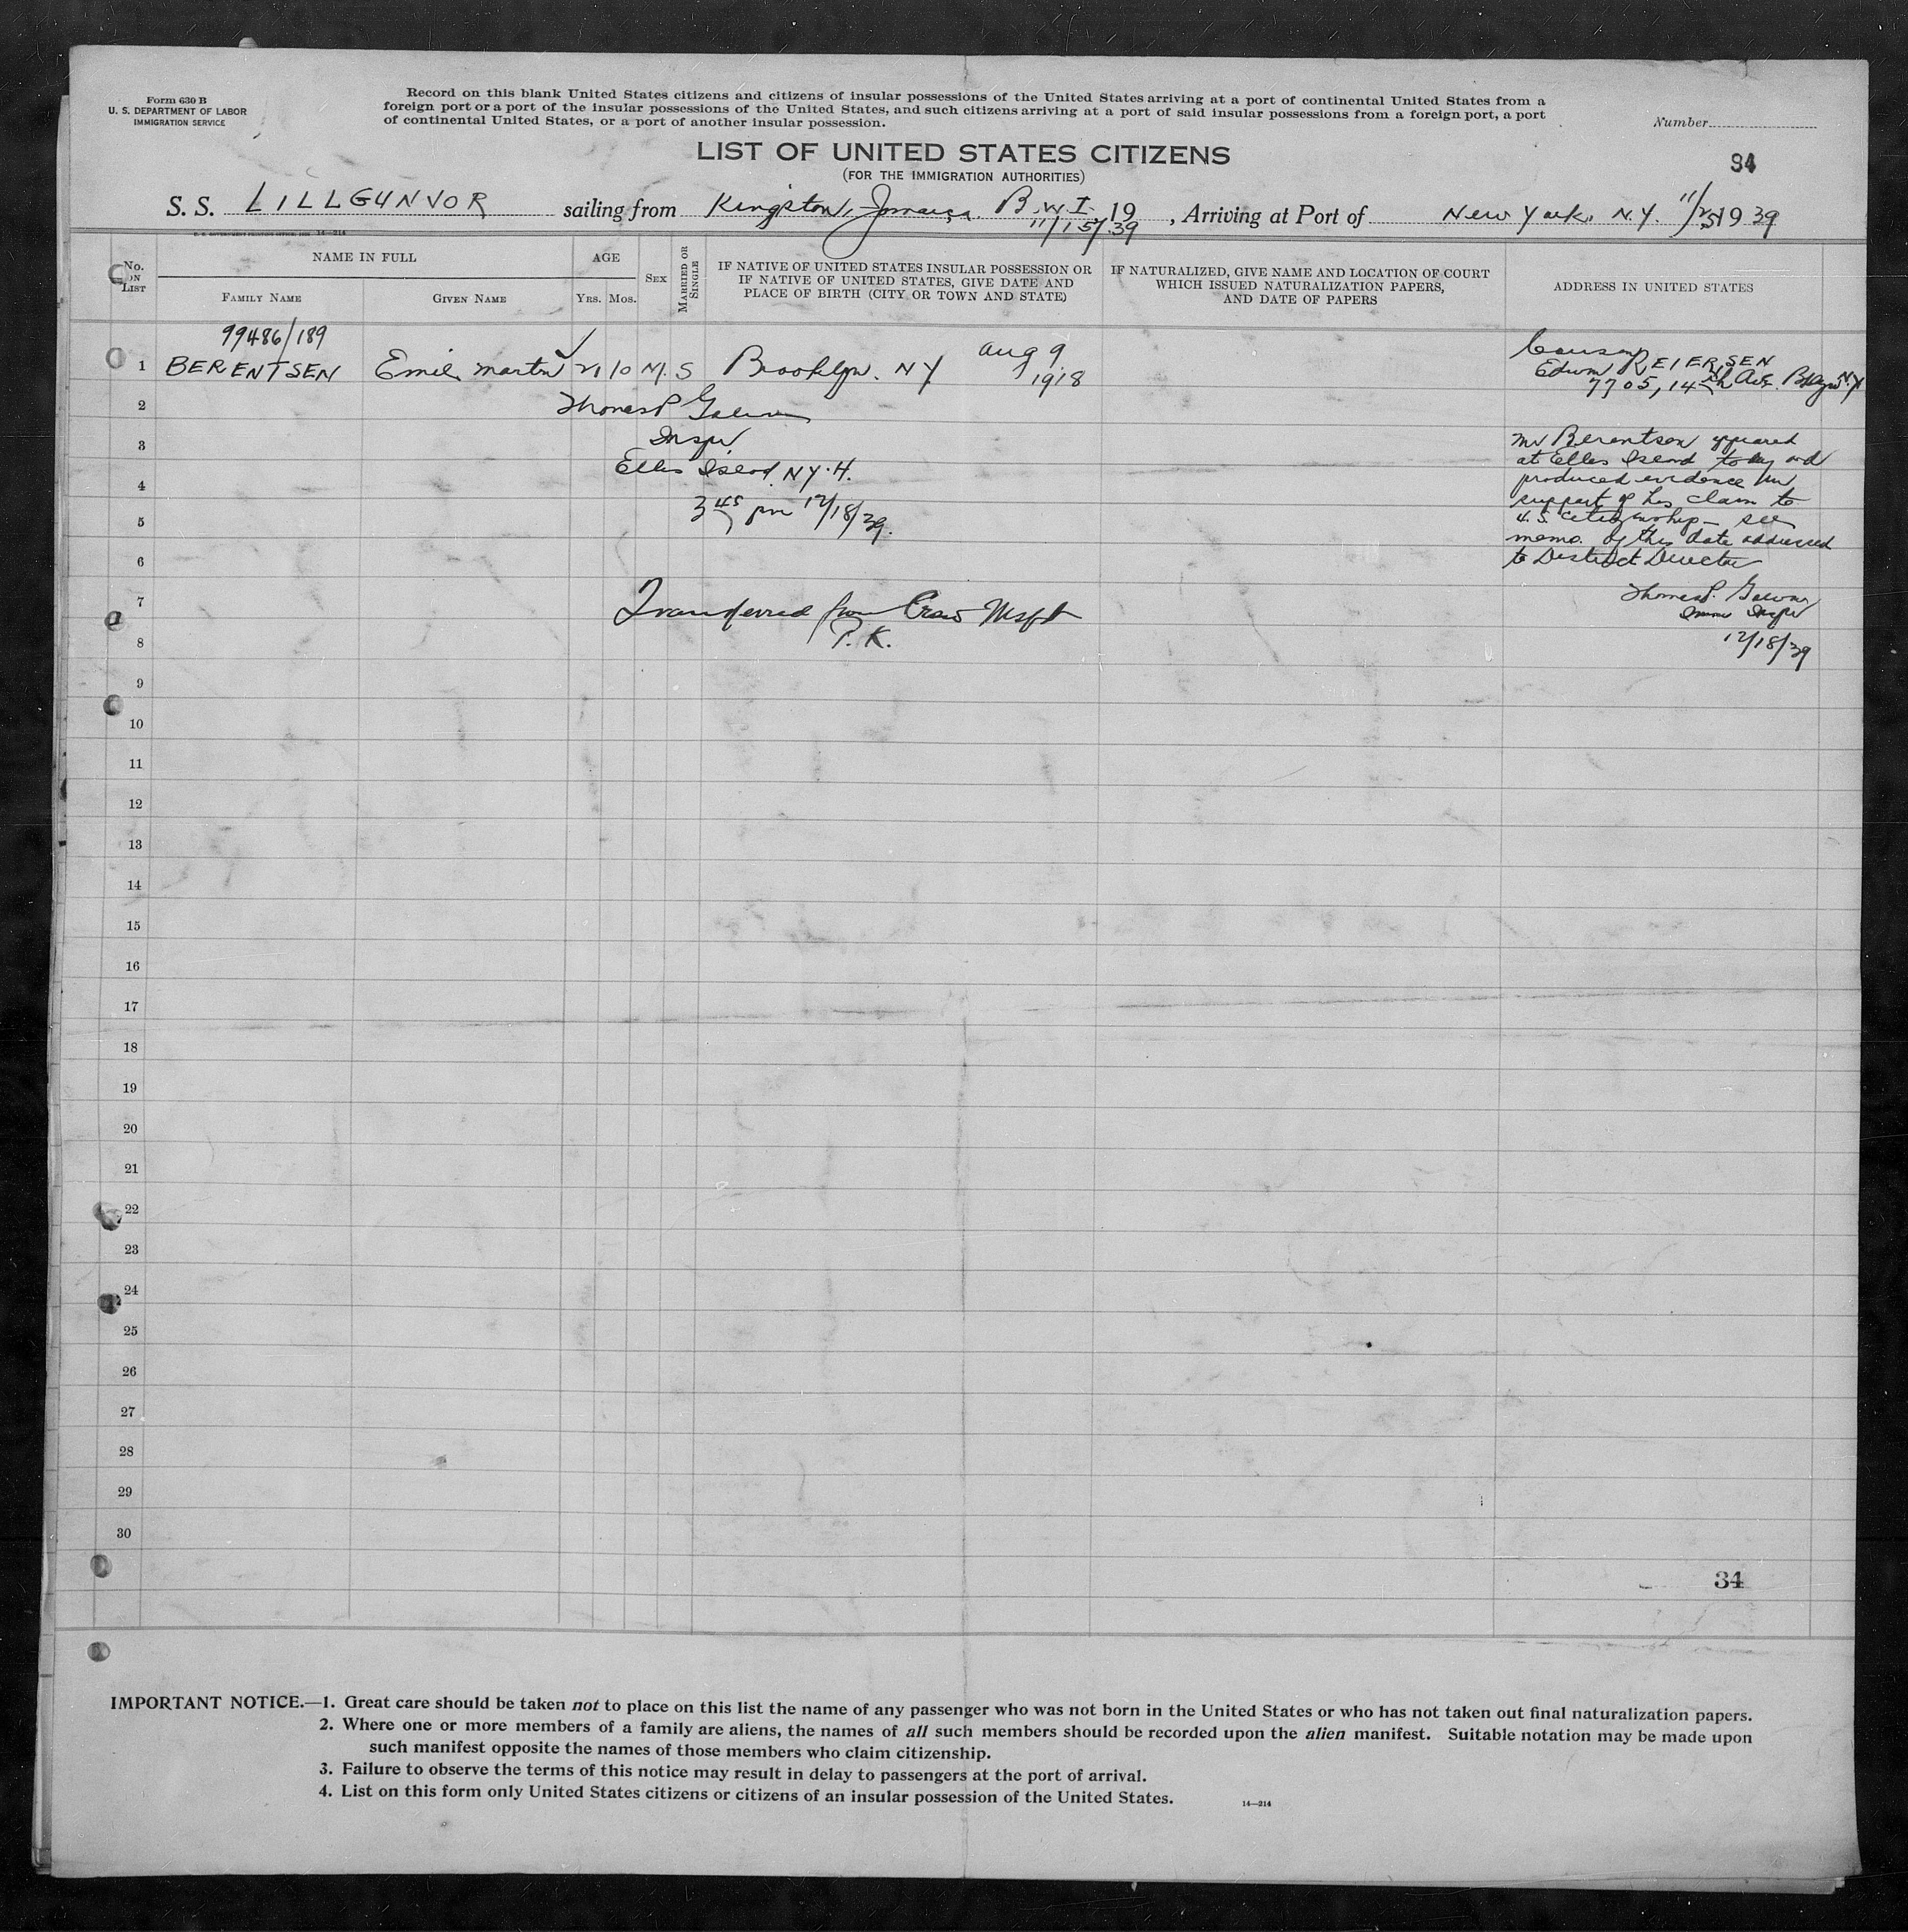 Form 630 B
U. S. DEPARTMENT OF LABOR
IMMIGRATION SERVICE
Record on this blank United States citizens and citizens of insular possessions of the United States arriving at a port of continental United States from a
foreign port or a port of the insular possessions of the United States, and such citizens arriving at a port of said insular possessions from a foreign port, a port
of continental United States, or a port of another insular possession.
Number
LIST OF UNITED STATES CITIZENS
(FOR THE IMMIGRATION AUTHORITIES)
34
S. S. LILLGUNVOR sailing from Kingston, Jamaica. B.W.I. 19 , Arriving at Port of New York, N.Y. 11/25/1939
11/15/39
No. ON LIST
NAME IN FULL
FAMILY NAME
GIVEN NAME
AGE
Yrs. Mos.
SEX
MARRIED OR SINGLE
IF NATIVE OF UNITED STATES INSULAR POSSESSION OR
IF NATIVE OF UNITED STATES, GIVE DATE AND
PLACE OF BIRTH (CITY OR TOWN AND STATE)
IF NATURALIZED, GIVE NAME AND LOCATION OF COURT
WHICH ISSUED NATURALIZATION PAPERS,
AND DATE OF PAPERS
ADDRESS IN UNITED STATES
99486/189
1 BERENTSEN Emil Martin 21 10 M. S Brooklyn. NY Aug 9 1918
Cousin
Edwin REIERSEN
7705, 14th Ave. Bklyn NY
2
Thomas P
3
Inspr
Ellis Island, N.Y.H.
4
3 45 pm 12/18/39.
5
6
Mr Berentsen appeared
at Ellis Island today and
produced evidence in
support of his claim to
U.S. citizenship - see
memo. of this date addressed
to District Director
Thomas P.
Imm Inspr
12/18/39
7
Transferred from Crew Msft
P. K.
8
9
10
11
12
13
14
15
16
17
18
19
20
21
22
23
24
25
26
27
28
29
30
34
IMPORTANT NOTICE.—1. Great care should be taken not to place on this list the name of any passenger who was not born in the United States or who has not taken out final naturalization papers.
2. Where one or more members of a family are aliens, the names of all such members should be recorded upon the alien manifest. Suitable notation may be made upon
such manifest opposite the names of those members who claim citizenship.
3. Failure to observe the terms of this notice may result in delay to passengers at the port of arrival.
4. List on this form only United States citizens or citizens of an insular possession of the United States.
14—214